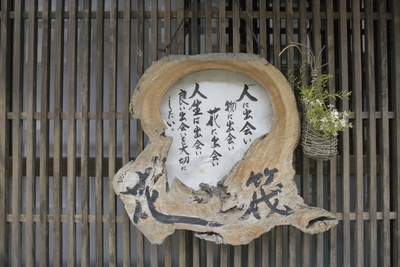 人に出会い
物に出会い
花に出会い
人生は出会い
良い出会いを大切に
したい。
花筏